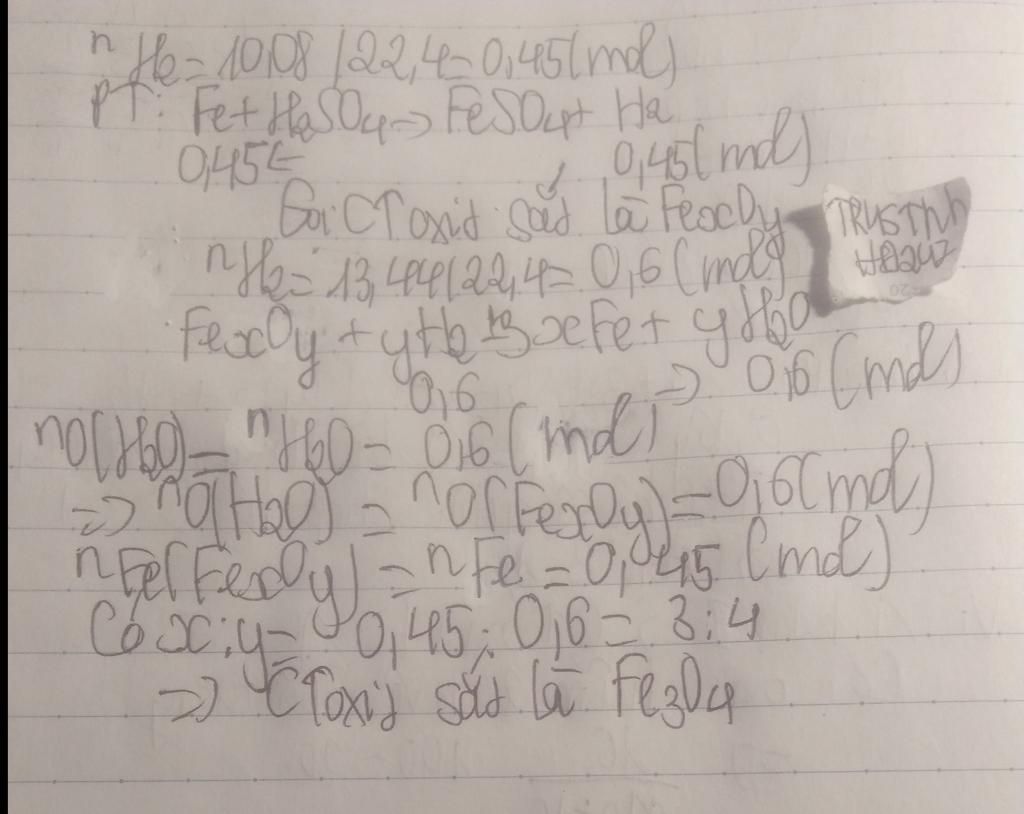 nH2 = 10,08/22,4 = 0,45(mol)
PT: Fe + H2SO4 → FeSO4 + H2
0,45 ← 0,45(mol)
Gọi CT oxit sắt là FexOy
nH2 = 13,44/22,4 = 0,6(mol)
FexOy + yH2 → xFe + yH2O
0,6 → 0,6(mol)
nO(H2O) = nH2O = 0,6(mol)
=> nO(H2O) = nO(FexOy) = 0,6(mol)
nFe(FexOy) = nFe = 0,45(mol)
Có x:y = 0,45:0,6 = 3:4
=> CT oxit sắt là Fe3O4